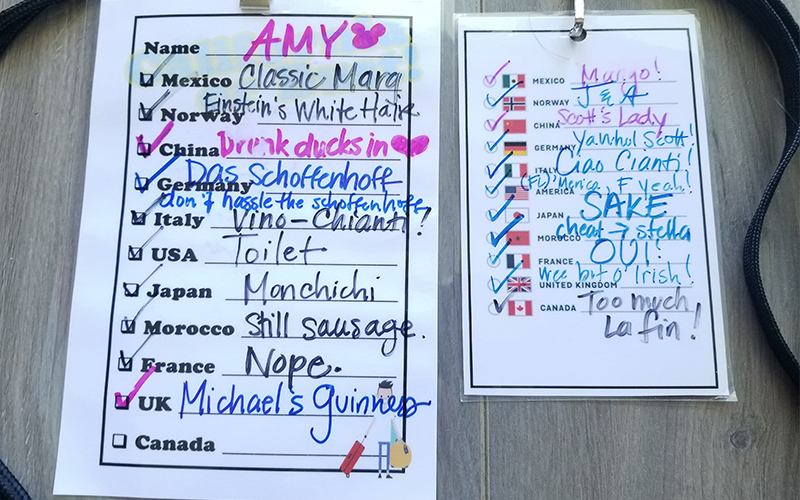 Name AMY
Mexico Classic Marg
Norway Einstein's White Hair
China Drunk ducks in
Germany Das Schoffenhoff
don't hassle the schoffenhoff
Italy Vino-Chianti?
USA Toilet
Japan Monchichi
Morocco Still sausage.
France Nope.
UK Michael's guinness
Canada
MEXICO Margo!
NORWAY J & A
CHINA Scott's Lady
GERMANY Yavhol Scott!
ITALY Ciao Cianti!
AMERICA (FL) 'Merica, F yeah!
JAPAN SAKE
MOROCCO cheat → stella
FRANCE OUI!
UNITED KINGDOM Wee bit o' Irish!
CANADA Too much
La fin!